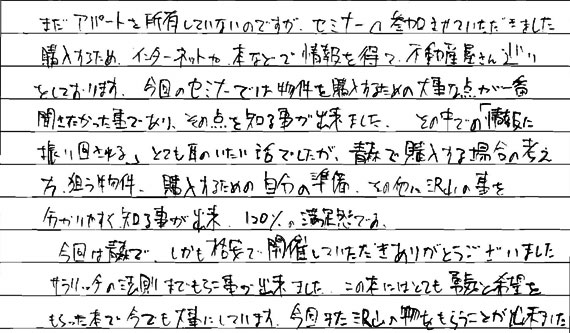 まだアパートを所有していないのですが、セミナーへ参加させていただきました
購入するため、インターネットや、本などで情報を得て、不動産屋さん巡り
をしております。今回のセミナーでは物件を購入するための大事な点が一番
聞きたかった事であり、その点を知る事が出来ました。その中での「情報に
振り回される」とても耳のいたい話でしたが、青森で購入する場合の考え
方、狙う物件、購入するための自分の準備、その他に沢山の事を
分かりやすく知る事が出来、120%の満足感です。
今回は青森で、しかも格安で開催していただきありがとうございました
サラリッチの法則までもらう事が出来ました。この本にはとても勇気と希望を
もらった本で今でも大事にしています。今回また沢山の物をもらうことが出来ました